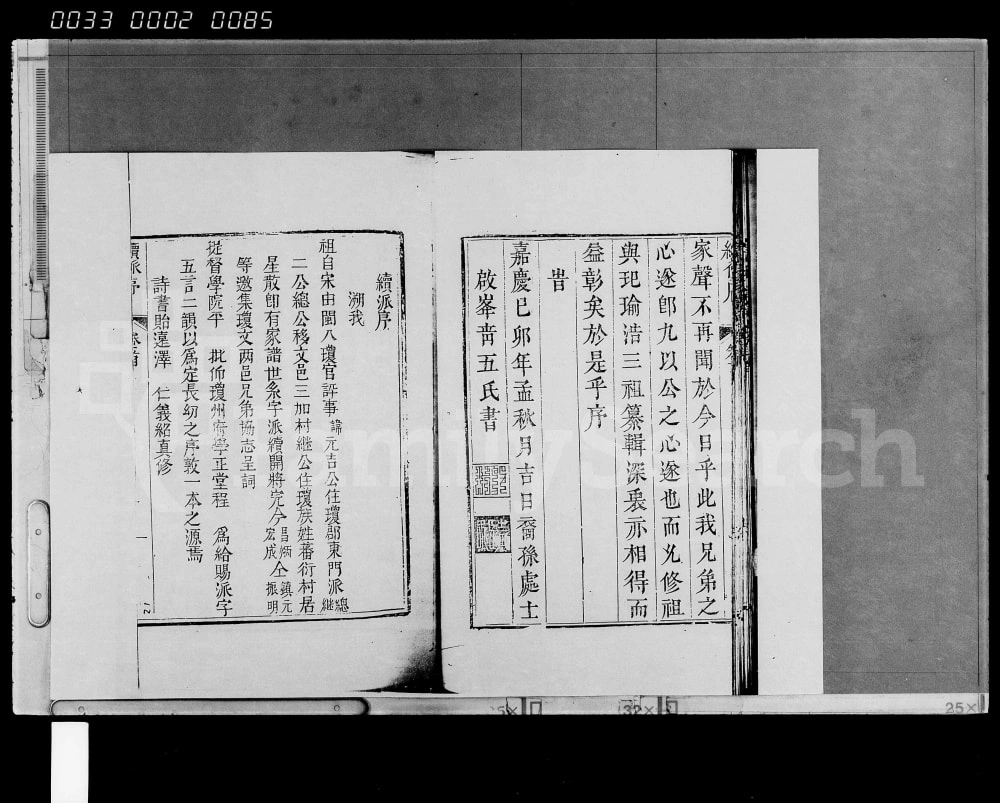 0033 0002 0085
家聲不再聞於今日乎此我兄弟之
心遂卽九以公之心遂也而兄修祖
與玘瑜浩三祖纂輯深裘亦相得而
益彰矣於是乎序
旹
嘉慶己卯年孟秋月吉日裔孫處士
啟峯靑五氏書
續派序
溯我
祖自宋由閩入瓊官評事諱元吉公住瓊郡東門派總繼
二公總公移文邑三加村繼公住瓊族姓蕃衍村居
星散卽有家譜世系字派續開將完今昌炳宏成仝鎮元振明
等邀集瓊文兩邑兄弟協志呈詞
從督學院平 批仰瓊州府學正堂程 爲給賜派字
五言二韻以爲定長幼之序敦一本之源焉
詩書貽遠澤 仁義紹真修
續派序
FamilySearch
25×